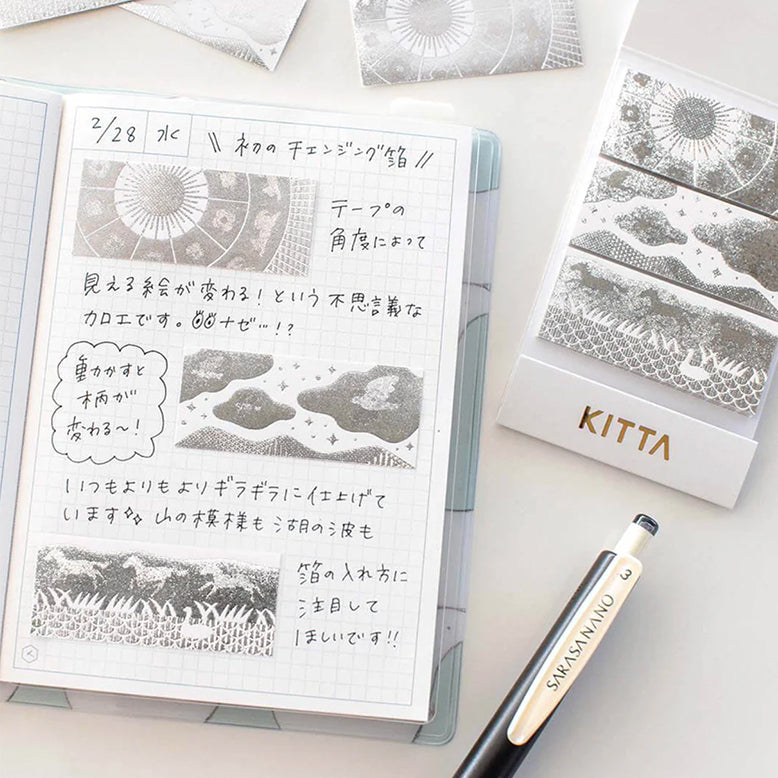 2/28 水 \\ 初の チェンジング箔 //
テープの
角度によって
見える絵が変わる！という不思議な
カロエです。ナゼ…!?
動かすと
柄が
変わる〜！
いつもよりもよりギラギラに仕上げて
います 山の模様も 湖の波も
箔の入れ方に
注目して
ほしいです!!
KITTA
3
SARASA NANO